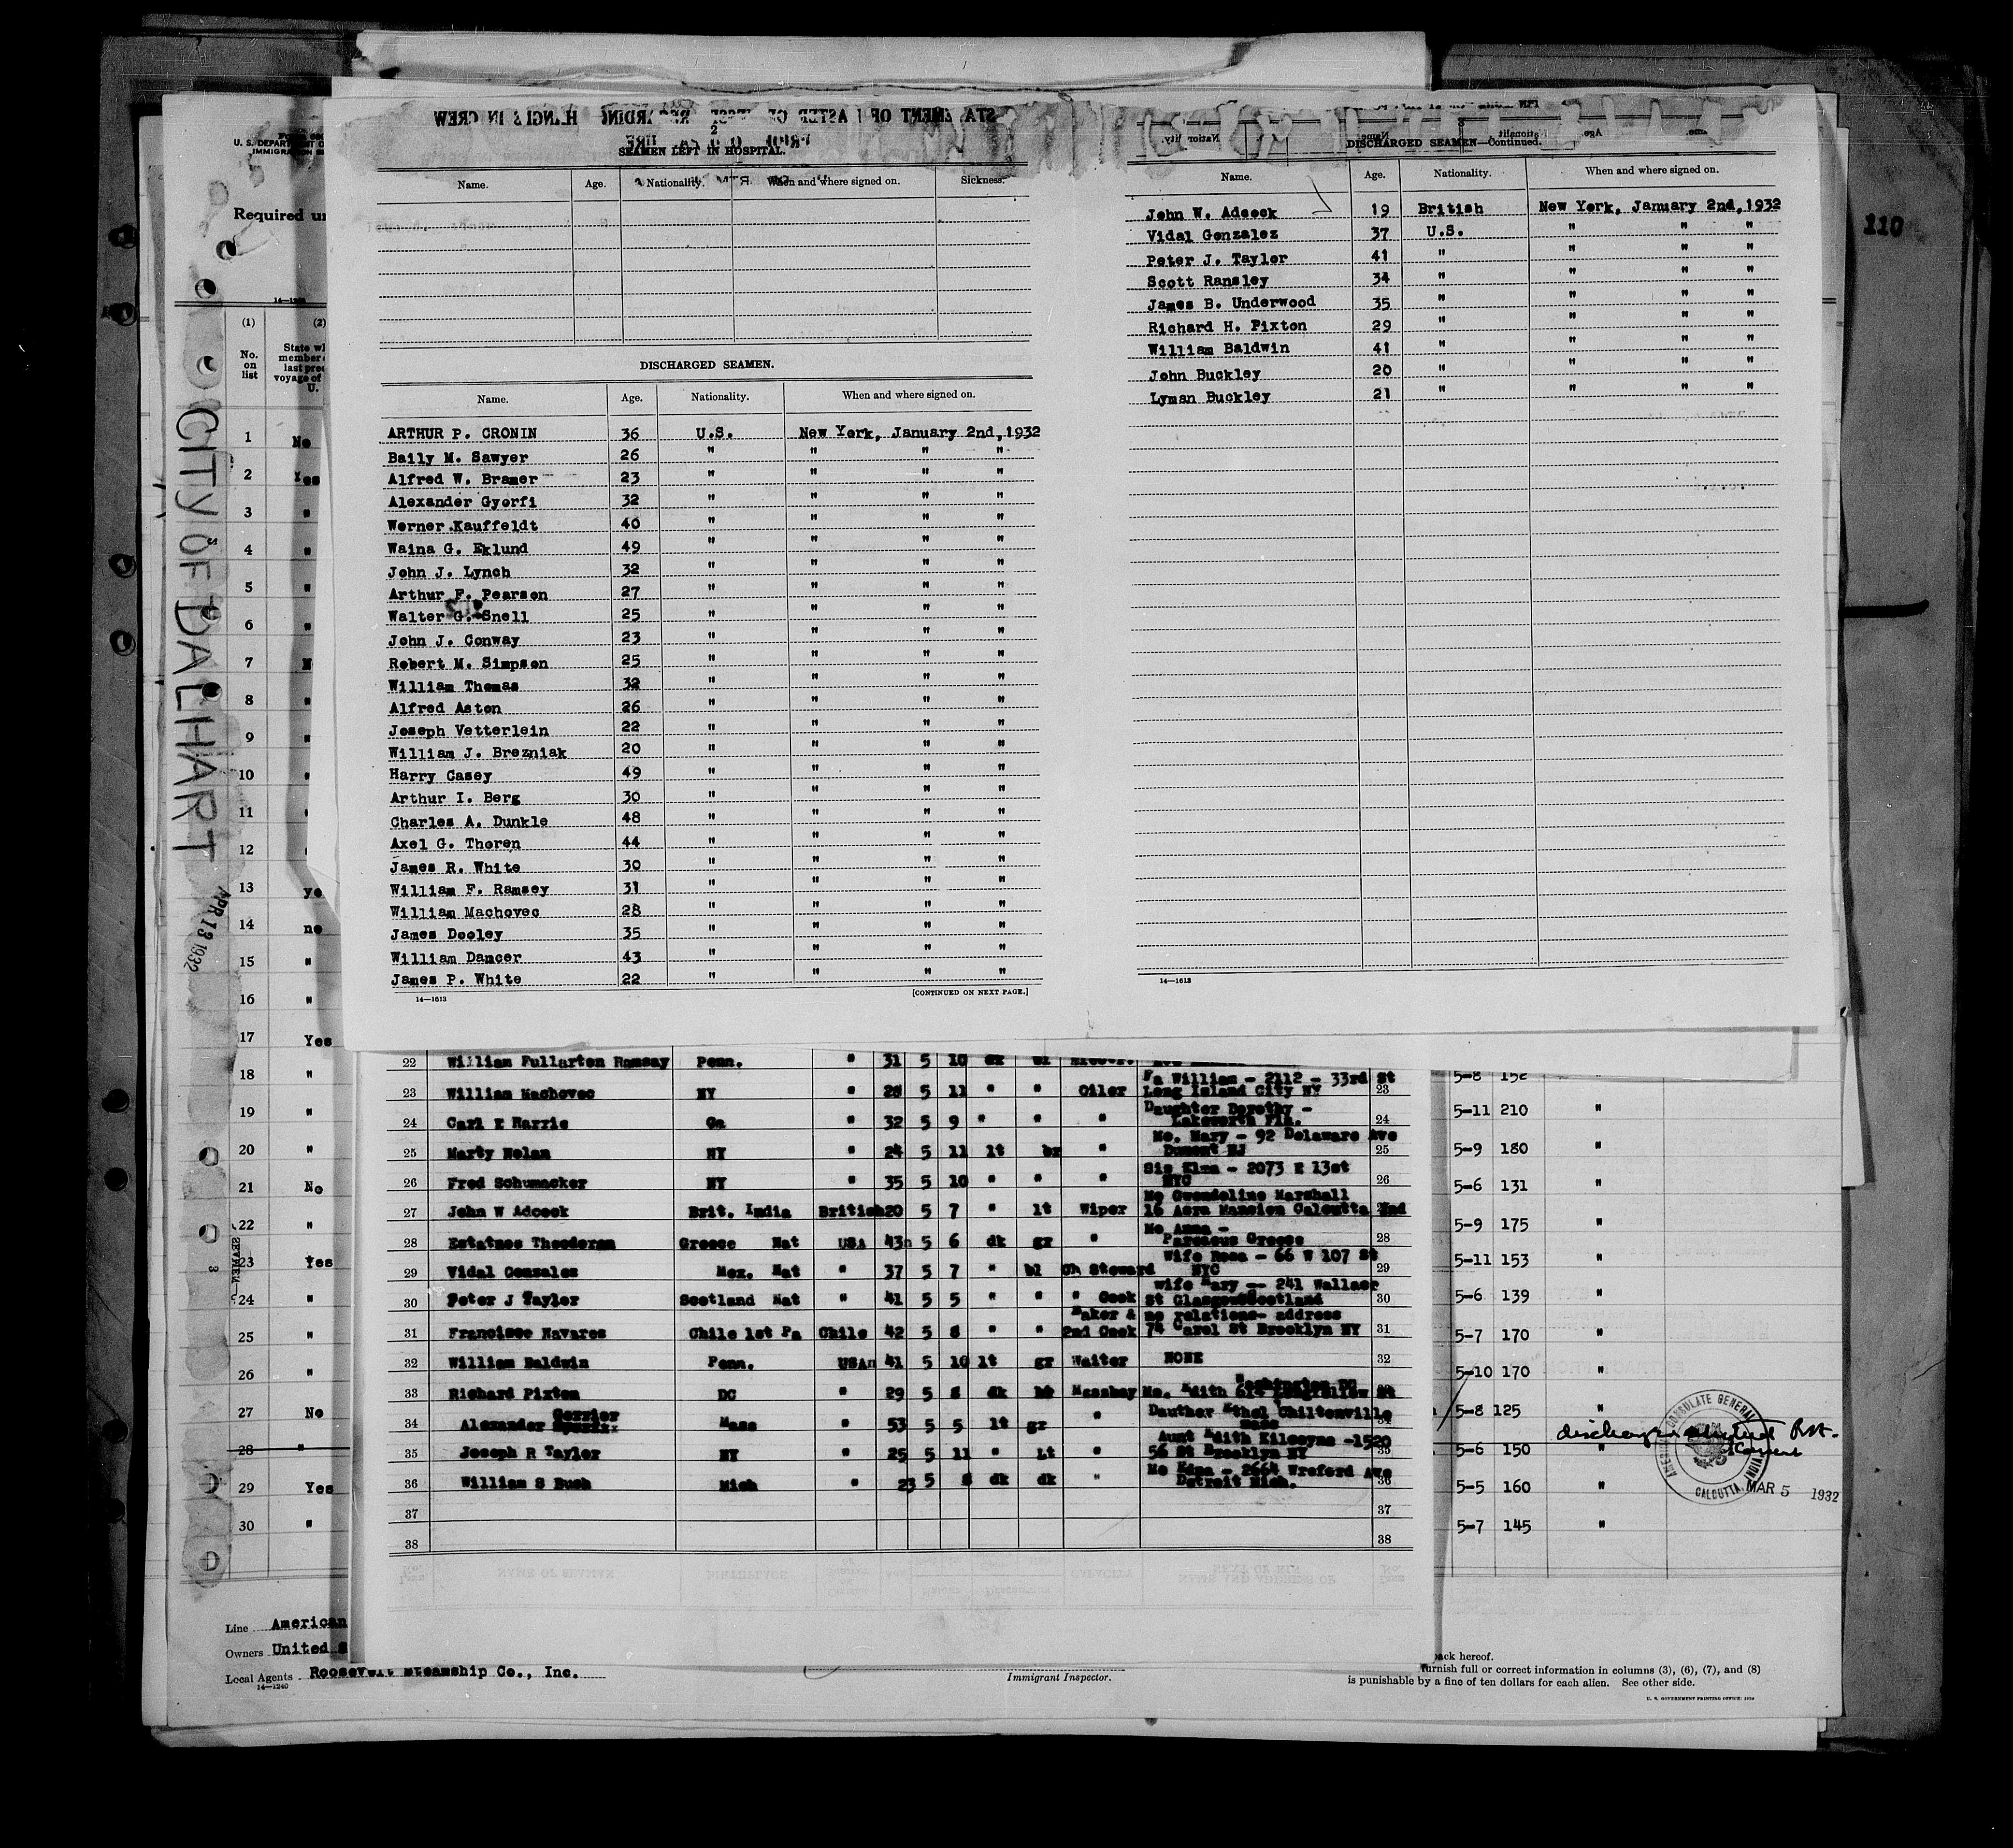 SEAMEN LEFT IN HOSPITAL.
Name. Age. Nationality. When and where signed on. Sickness.
DISCHARGED SEAMEN.
Name. Age. Nationality. When and where signed on.
ARTHUR P. CRONIN 36 U.S. New York, January 2nd, 1932
Baily M. Sawyer 26 " " " "
Alfred W. Bramer 23 " " " "
Alexander Gyorfi 32 " " " "
Werner Kauffeldt 40 " " " "
Waina G. Eklund 49 " " " "
John J. Lynch 32 " " " "
Arthur F. Pearson 27 " " " "
Walter G. Snell 25 " " " "
John J. Conway 23 " " " "
Robert M. Simpson 25 " " " "
William Thomas 32 " " " "
Alfred Aston 26 " " " "
Joseph Vetterlein 22 " " " "
William J. Brezniak 20 " " " "
Harry Casey 49 " " " "
Arthur I. Berg 30 " " " "
Charles A. Dunkle 48 " " " "
Axel G. Thoren 44 " " " "
James R. White 30 " " " "
William F. Ramsey 31 " " " "
William Machovec 28 " " " "
James Dooley 35 " " " "
William Dancer 43 " " " "
James P. White 22 " " " "
14—1613 [CONTINUED ON NEXT PAGE.]
3
DISCHARGED SEAMEN—Continued.
Name. Age. Nationality. When and where signed on.
John W. Adcock 19 British New York, January 2nd, 1932
Vidal Gonzalez 37 U.S. " " "
Peter J. Taylor 41 " " " "
Scott Ransley 34 " " " "
James B. Underwood 35 " " " "
Richard H. Pixton 29 " " " "
William Baldwin 41 " " " "
John Buckley 20 " " " "
Lyman Buckley 21 " " " "
14—1613
110
U. S. DEPARTMENT O
IMMIGRATION
Required un
(1) (2)
No. on list
State wh
member
last prec
voyage of
U.
CITY OF DALHART
APR 13 1932
1 No
2 Yes
3 "
4 "
5 "
6 "
7
8 "
9 "
10 "
11
12
13 ye
14 no
15 "
16 "
17 Yes
18 "
19 "
20 "
21 No
22 "
23 Yes
24 "
25 "
26 "
27 No
28 "
29 Yes
30 "
22 William Fullarton Ramsay Penn. " 31 5 10 dk
23 William Machovec NY " 28 5 11 " " Oiler Fa William - 2112 - 33rd St Long Island City NY 23
24 Carl E Harris Ga " 32 5 9 " " " Daughter Dorothy - Lakeworth Fla. 24
25 Marty Nolan NY " 24 5 11 lt br " Mo. Mary - 92 Delaware Ave Dumont NJ 25
26 Fred Schumacker NY " 35 5 10 " " " Sis Elma - 2073 E 13st NYC 26
27 John W Adcock Brit. India British 20 5 7 " lt Wiper Mo Gwendoline Marshall 16 Acra Mansion Calcutta Ind
28 Estatnos Theodoran Greece Nat USA 43 5 6 dk gr " Mo Anna - Greece 28
29 Vidal Gonzales Mex. Nat " 37 5 7 " bl Ch Steward Wife Rosa - 66 W 107 St NYC 29
30 Peter J Taylor Scotland Nat " 41 5 5 " " " Cook wife Mary - 241 Wallace St Glasgow Scotland 30
31 Francisco Navares Chile 1st Pa Chile 42 5 8 " " Baker & 2nd Cook no relations- address 74 Carol St Brooklyn NY 31
32 William Baldwin Penn. USA 41 5 10 lt gr Waiter NONE 32
33 Richard Pixton DC " 29 5 8 dk Messboy Mo. Edith Washington DC
34 Alexander Mass " 53 5 5 lt gr " Dauther Ethel Chiltonville Mass 34
35 Joseph R Taylor NY " 25 5 11 " Lt " Aunt Edith Kilcoyne -1520 56 St Brooklyn NY 35
36 William S Bush Mich " 23 5 8 dk dk " Mo Edna - 2664 Wreford Ave Detroit Mich. 36
37 37
38 38
5-8 152
5-11 210 "
5-9 180 "
5-6 131 "
5-9 175 "
5-11 153 "
5-6 139 "
5-7 170 "
5-10 170 "
5-8 125
5-6 150 "
5-5 160 "
5-7 145 "
AMERICAN CONSULATE GENERAL
CALCUTTA, INDIA
MAR 5 1932
Line American
Owners United S
Local Agents Roosevelt Steamship Co., Inc.
14—1240
Immigrant Inspector.
back hereof.
furnish full or correct information in columns (3), (6), (7), and (8)
is punishable by a fine of ten dollars for each alien. See other side.
U. S. GOVERNMENT PRINTING OFFICE